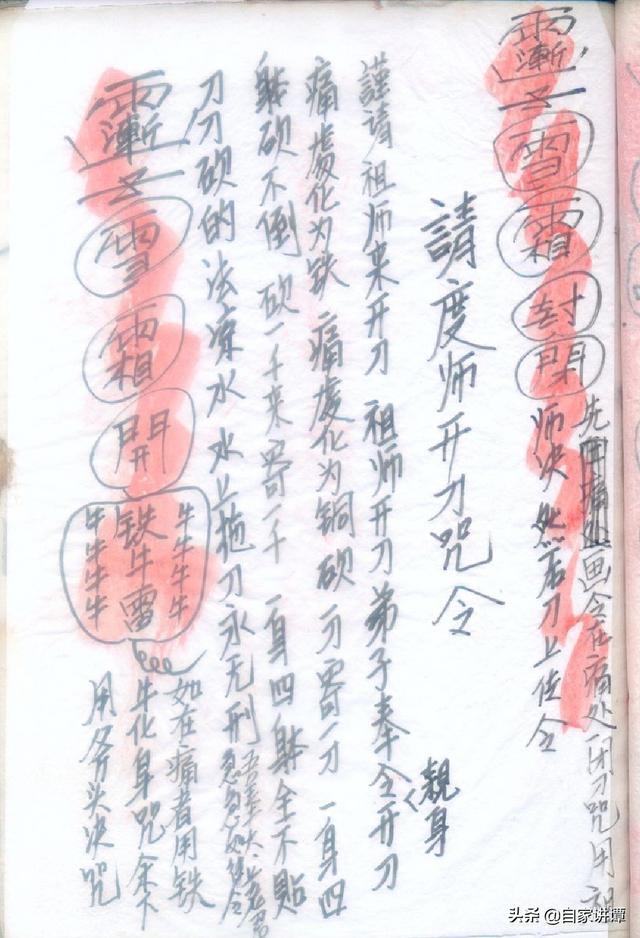 雪
霜
封
開
师决 然后刀上佐令
画令在痛处 闭刀咒用祖
請度师开刀咒令
謹请祖师来开刀 祖师开刀弟子奉令开刀
親身
痛處化为铁 痛處化为铜 砍一刀寄一刀 一身四
躰砍不倒 砍一千来寄一千 一身四躰全不贴
刀刀砍的法凜水 水上拖刀永无刑
雪
霜
開
牛牛牛牛
铁牛雷
牛牛牛牛
如在痛者用铁
牛化身咒余下
用斧头决咒
头条 @自家讲谭